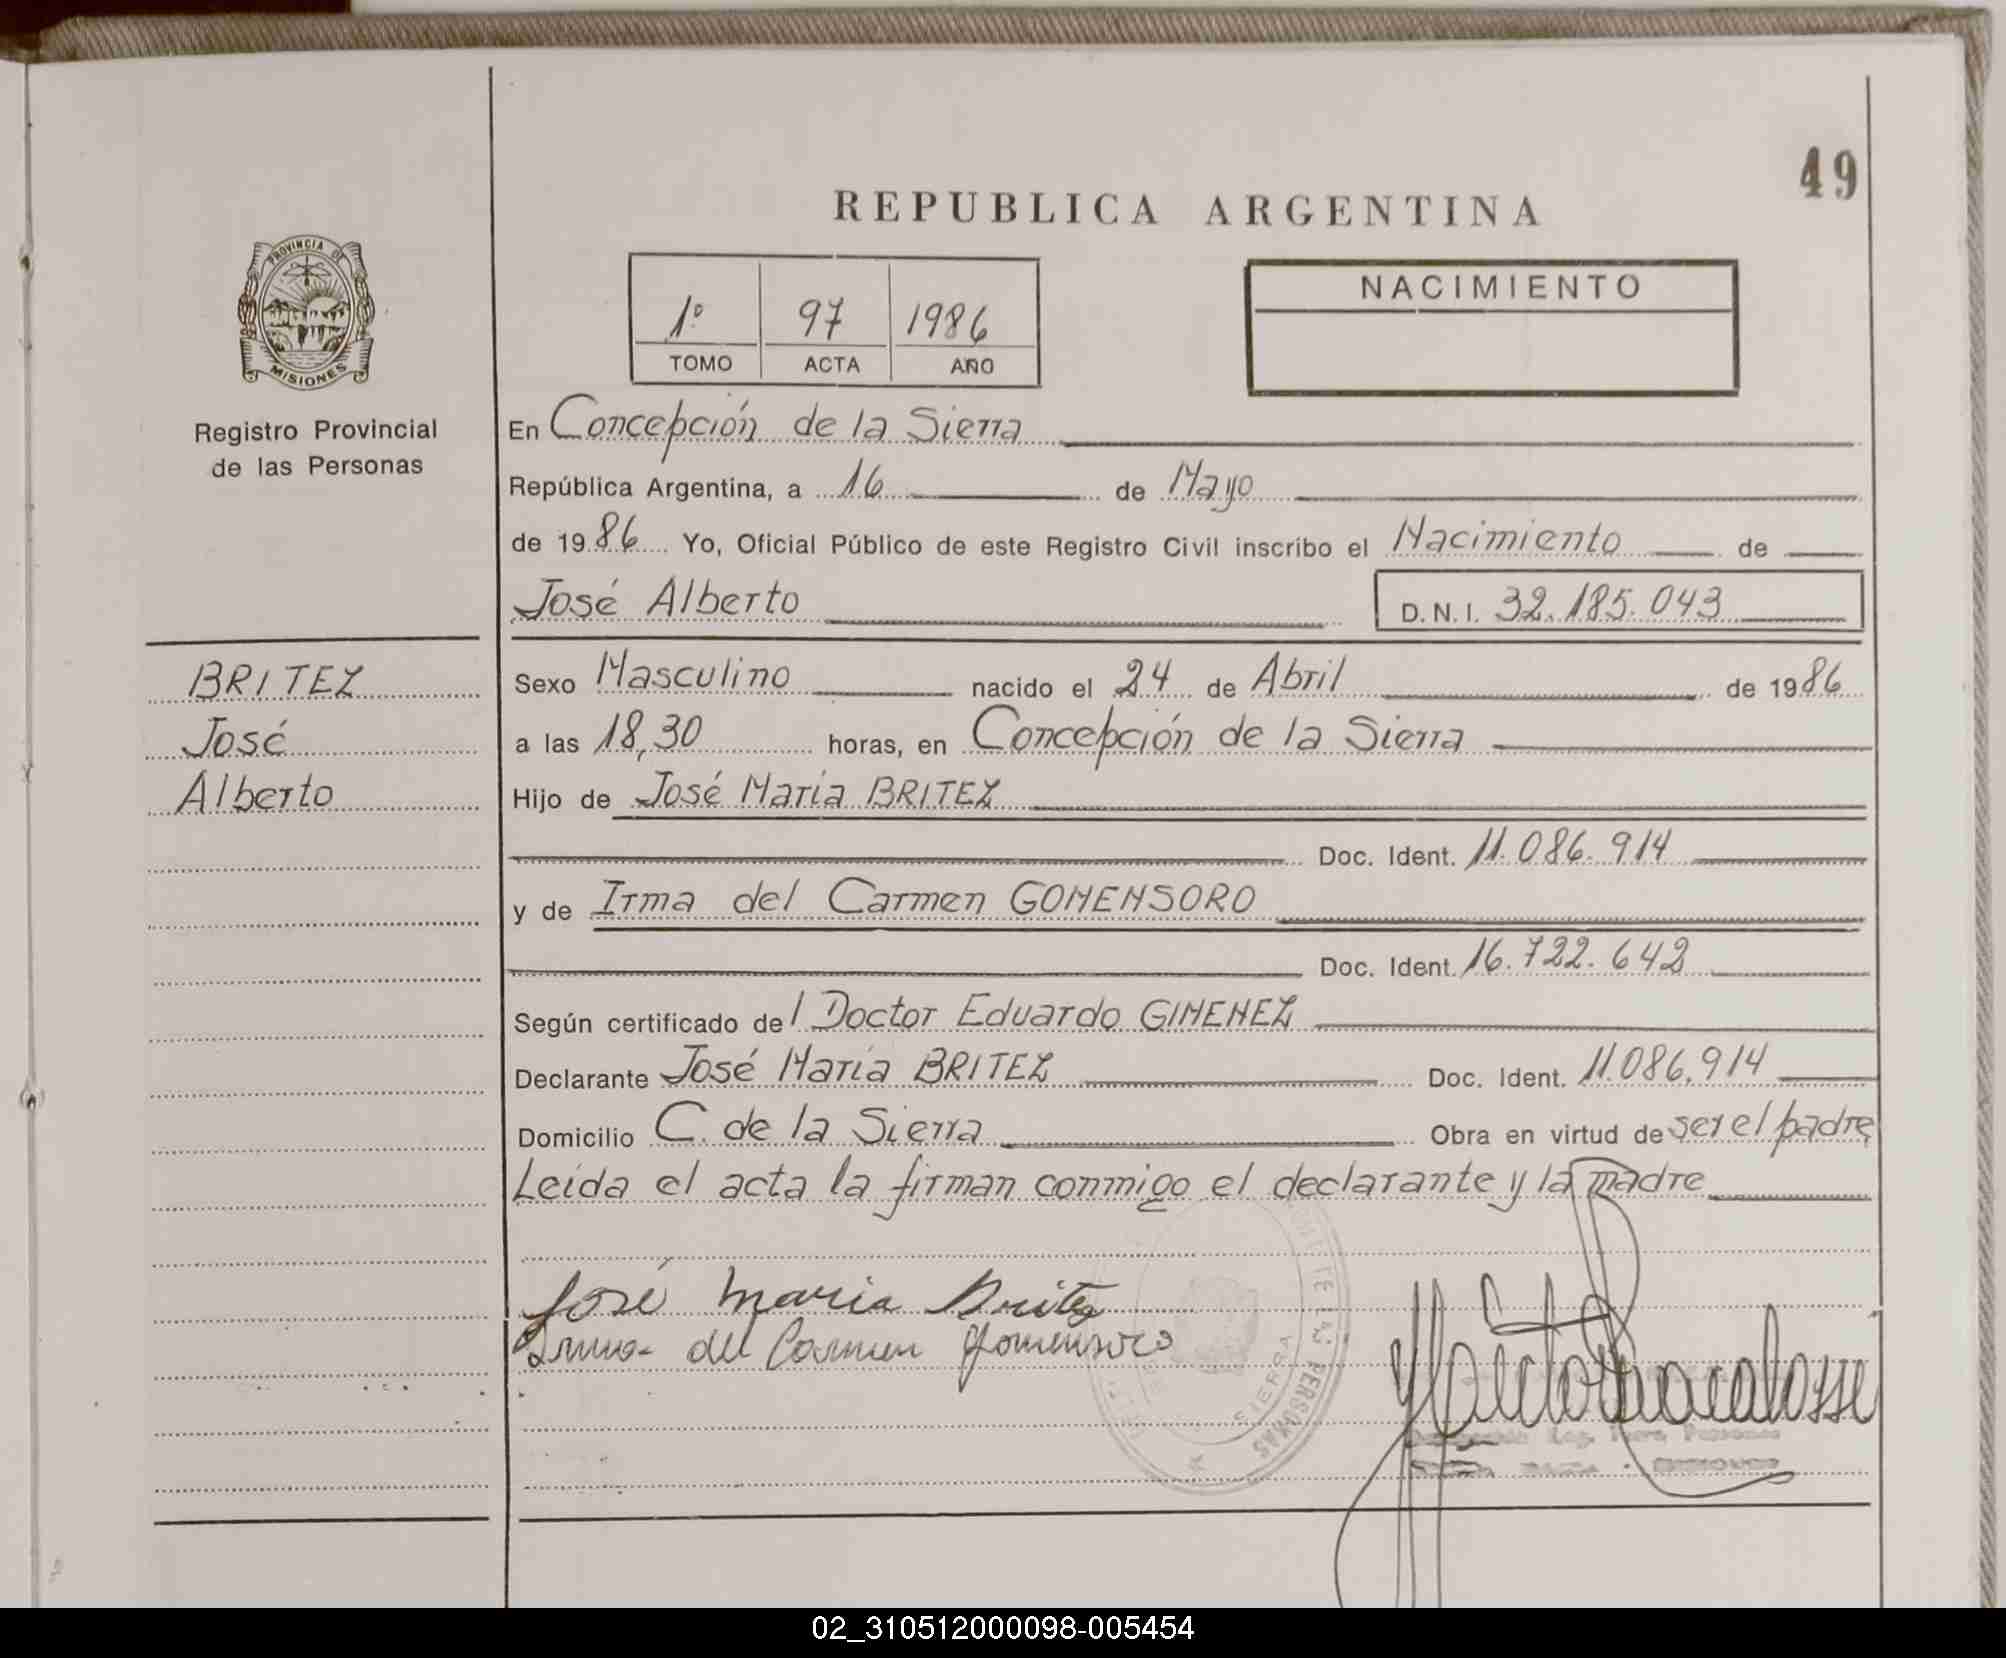 49
REPUBLICA ARGENTINA
PROVINCIA DE
MISIONES
Registro Provincial
de las Personas
1º 97 1986
TOMO ACTA AÑO
NACIMIENTO
En Concepción de la Sierra
República Argentina, a 16 de Mayo
de 1986 Yo, Oficial Público de este Registro Civil inscribo el Nacimiento de
José Alberto D.N.I. 32.185.043
BRITEZ
José
Alberto
Sexo Masculino nacido el 24 de Abril de 1986
a las 18,30 horas, en Concepción de la Sierra
Hijo de José María BRITEZ
Doc. Ident. 11.086.914
y de Irma del Carmen GOMENSORO
Doc. Ident. 16.722.642
Según certificado del Doctor Eduardo GIMENEZ
Declarante José María BRITEZ Doc. Ident. 11.086.914
Domicilio C. de la Sierra Obra en virtud de ser el padre
Leída el acta la firman conmigo el declarante y la madre
José Maria Britez
Irma del Carmen Gomensoro
PERSONAS
SIERRA
02_310512000098-005454